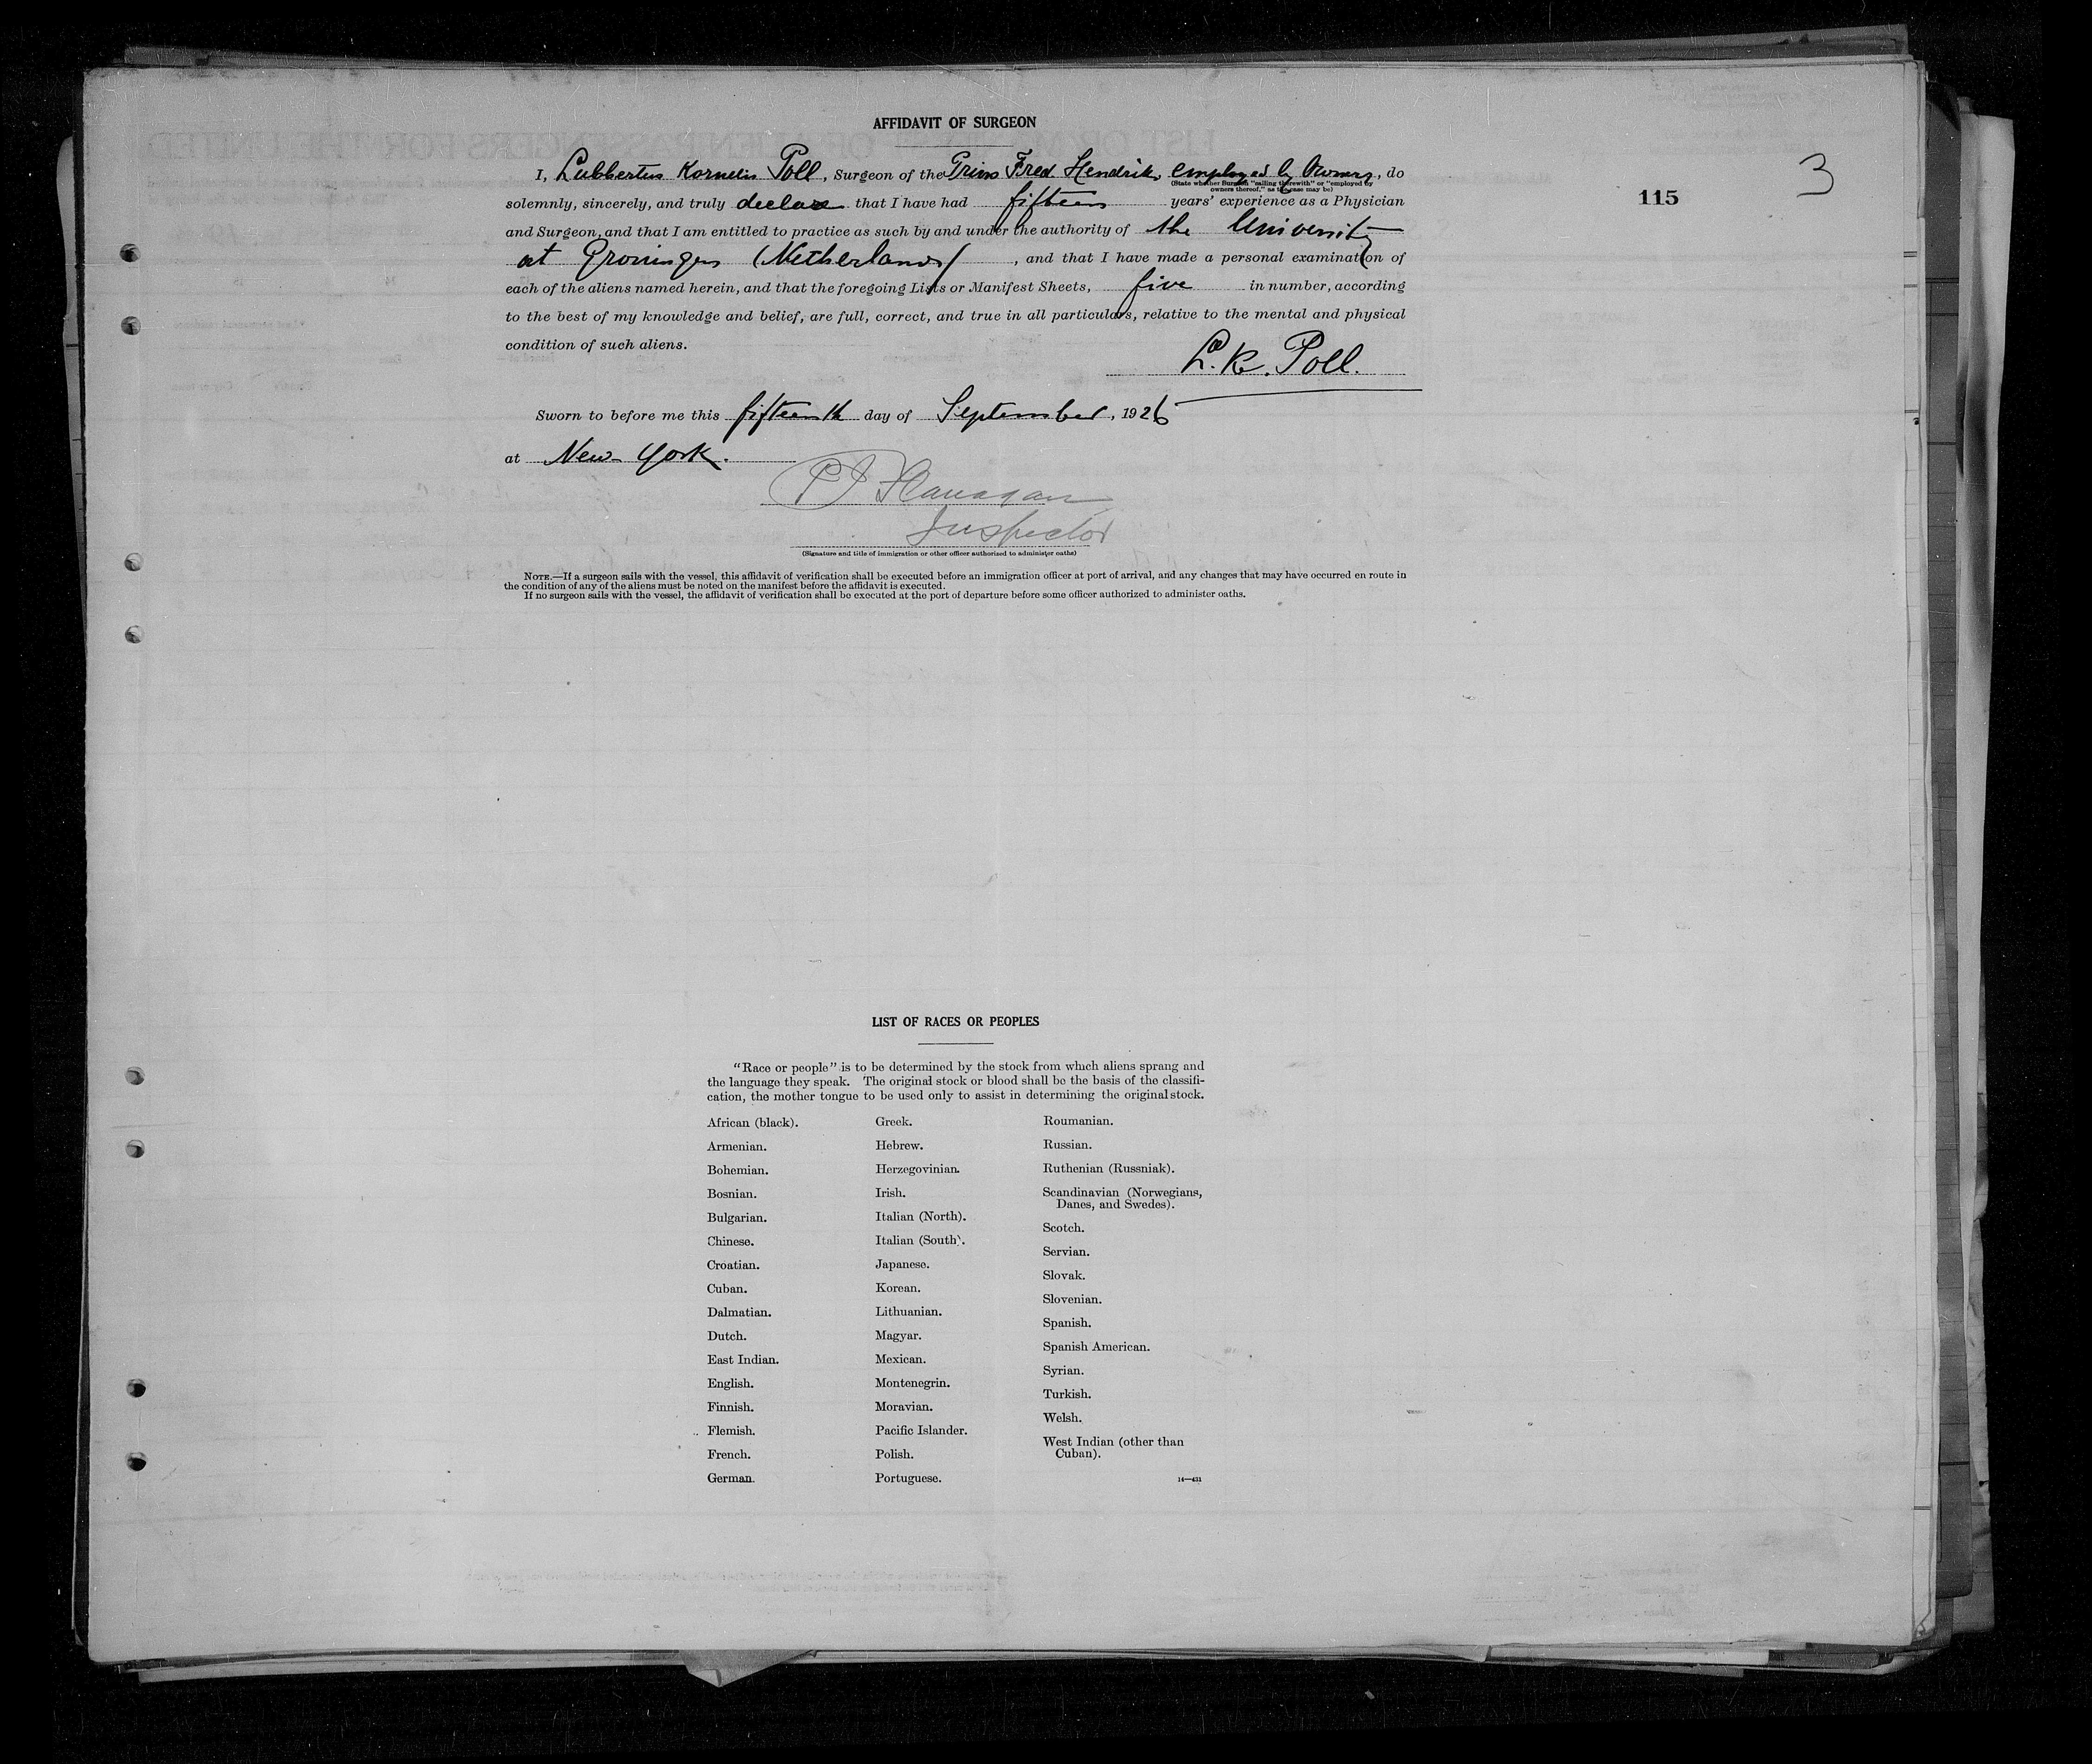 AFFIDAVIT OF SURGEON
3
I, Lubbertus Kornelis Poll, Surgeon of the Prins Fred. Hendrik, employed by Owners, do
(State whether Surgeon "sailing therewith" or "employed by
owners thereof," as the case may be)
115
solemnly, sincerely, and truly declare that I have had fifteen years' experience as a Physician
and Surgeon, and that I am entitled to practice as such by and under the authority of the University
at Groningen (Netherlands), and that I have made a personal examination of
each of the aliens named herein, and that the foregoing Lists or Manifest Sheets, five in number, according
to the best of my knowledge and belief, are full, correct, and true in all particulars, relative to the mental and physical
condition of such aliens.
L. K. Poll.
Sworn to before me this fifteenth day of September, 1926
at New York.
P J Flanagan
Inspector
(Signature and title of immigration or other officer authorized to administer oaths)
NOTE.—If a surgeon sails with the vessel, this affidavit of verification shall be executed before an immigration officer at port of arrival, and any changes that may have occurred en route in
the condition of any of the aliens must be noted on the manifest before the affidavit is executed.
If no surgeon sails with the vessel, the affidavit of verification shall be executed at the port of departure before some officer authorized to administer oaths.
LIST OF RACES OR PEOPLES
"Race or people" is to be determined by the stock from which aliens sprang and
the language they speak. The original stock or blood shall be the basis of the classifi-
cation, the mother tongue to be used only to assist in determining the original stock.
African (black).
Armenian.
Bohemian.
Bosnian.
Bulgarian.
Chinese.
Croatian.
Cuban.
Dalmatian.
Dutch.
East Indian.
English.
Finnish.
Flemish.
French.
German.
Greek.
Hebrew.
Herzegovinian.
Irish.
Italian (North).
Italian (South).
Japanese.
Korean.
Lithuanian.
Magyar.
Mexican.
Montenegrin.
Moravian.
Pacific Islander.
Polish.
Portuguese.
Roumanian.
Russian.
Ruthenian (Russniak).
Scandinavian (Norwegians,
Danes, and Swedes).
Scotch.
Servian.
Slovak.
Slovenian.
Spanish.
Spanish American.
Syrian.
Turkish.
Welsh.
West Indian (other than
Cuban).